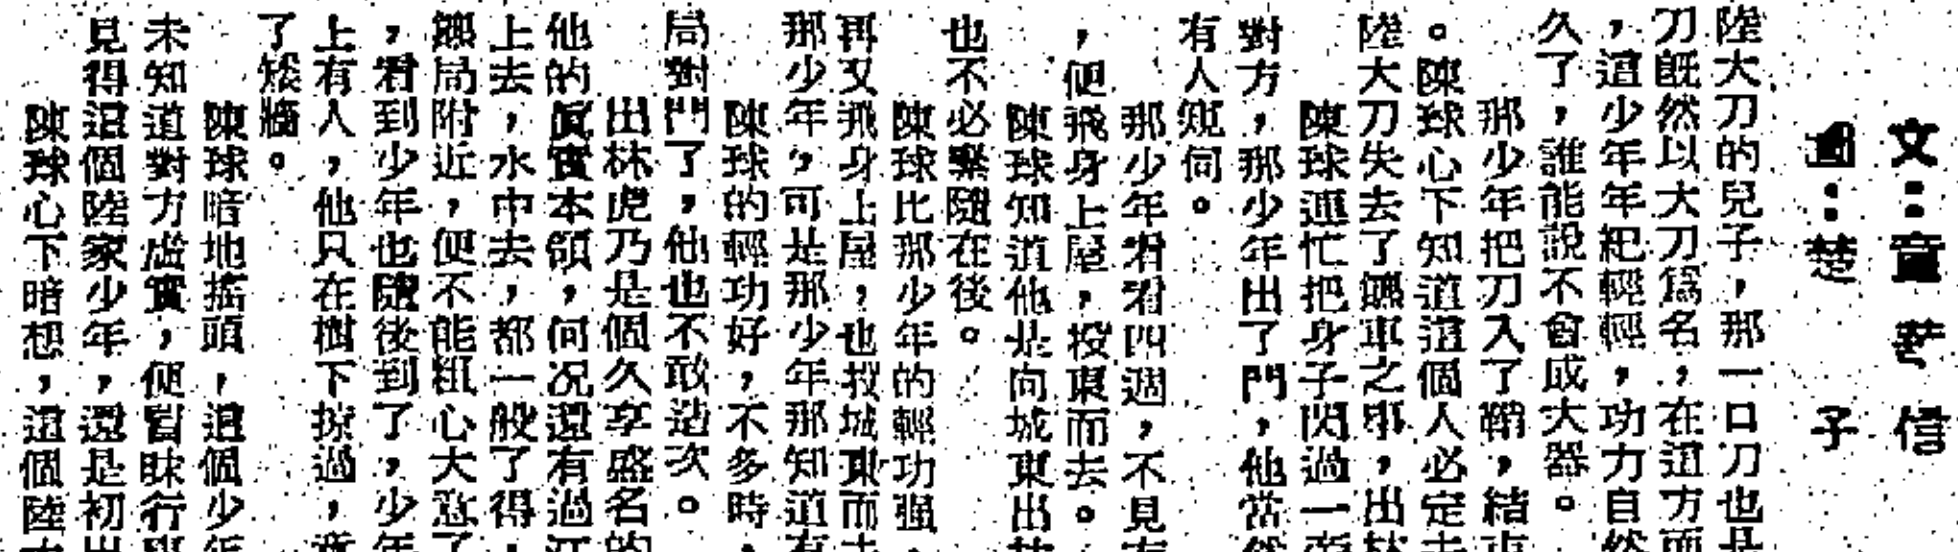 文：童 信
圖：楚 子
陸大刀的兒子，那一口刀也是
刀旣然以大刀爲名，在這方面
，這少年年紀輕輕，功力自然
久了，誰能說不會成大器。
那少年把刀入了鞘，結
。陳球心下知道這個人必定
陸大刀失去了鏢車之事，出林
陳球連忙把身子閃過一
對方，那少年出了門，他當然
有人窺伺。
那少年看看四週，不見
，便飛身上屋，投東而去。
陳球知道他是向城東出
也不必緊隨在後。
陳球比那少年的輕功强，
再又飛身上屋，也投城東而
那少年，可是那少年那知道有
陳球的輕功好，不多時，
局對門了，他也不敢造次。
出林虎乃是個久享盛名的
他的眞實本領，何况還有過江
上去，水中去，都一般了得，
鏢局附近，便不能粗心大意了
，看到少年也隨後到了，少年
上有人，他只在樹下掠過，
了矮牆。
陳球暗地搖頭，這個少年
未知道對方虛實，便冒昧行
見得這個陸家少年，還是初出
陳球心下暗想，這個陸